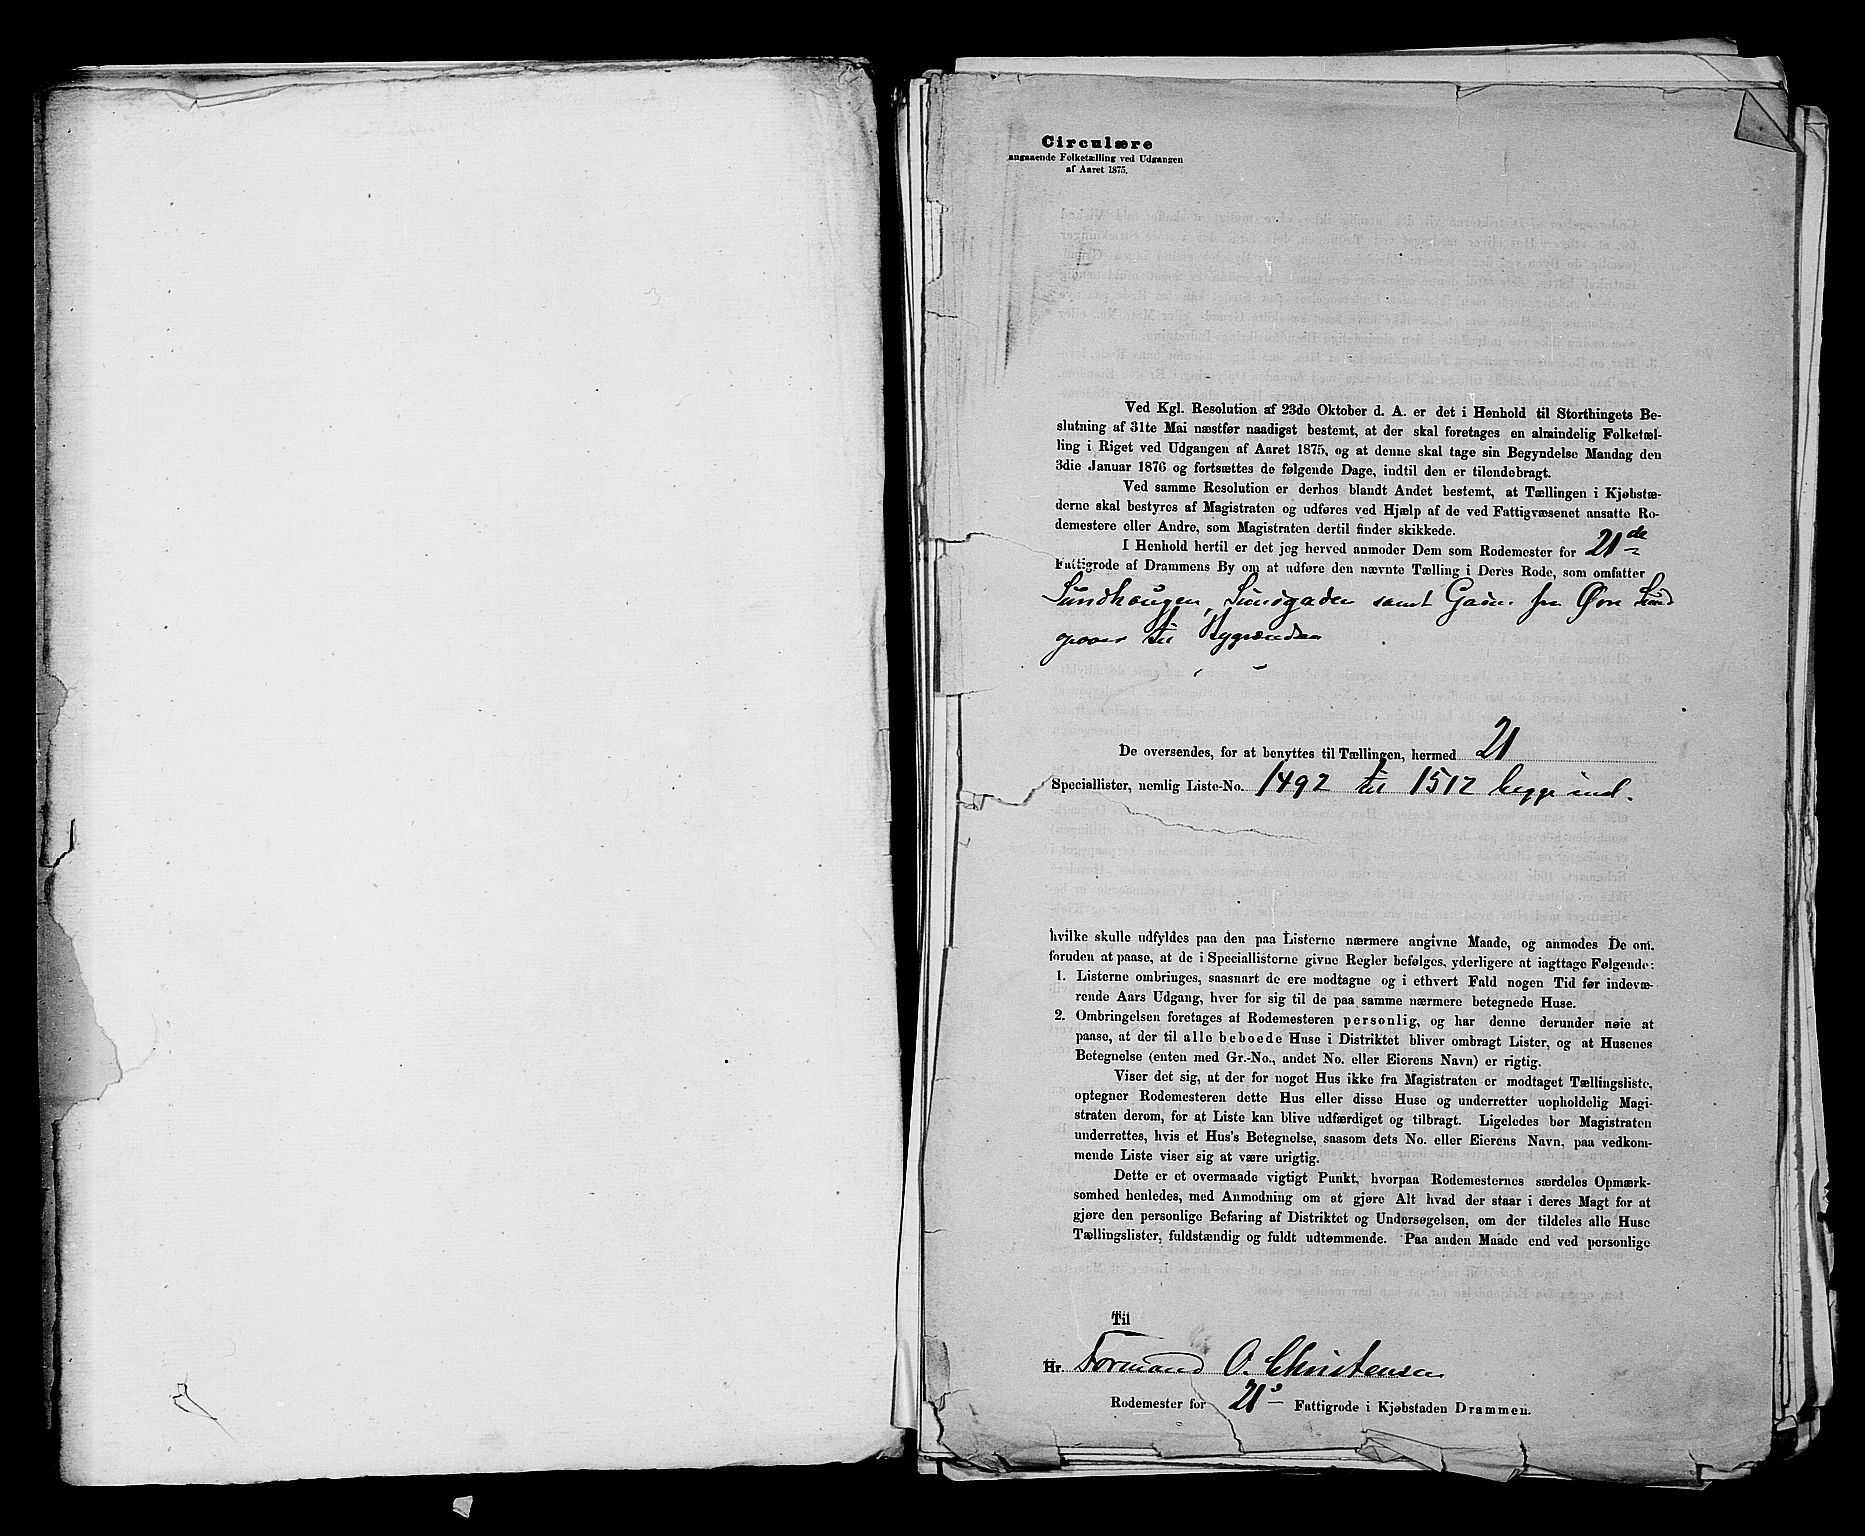 Circulære
angaaende Folketælling ved Udgangen
af Aaret 1875.
Ved Kgl. Resolution af 23de Oktober d. A. er det i Henhold til Storthingets Be-
slutning af 31te Mai næstfør naadigst bestemt, at der skal foretages en almindelig Folketæl-
ling i Riget ved Udgangen af Aaret 1875, og at denne skal tage sin Begyndelse Mandag den
3die Januar 1876 og fortsættes de følgende Dage, indtil den er tilendebragt.
Ved samme Resolution er derhos blandt Andet bestemt, at Tællingen i Kjøbstæ-
derne skal bestyres af Magistraten og udføres ved Hjælp af de ved Fattigvæsenet ansatte Ro-
demestere eller Andre, som Magistraten dertil finder skikkede.
I Henhold hertil er det jeg herved anmoder Dem som Rodemester for 21de
Fattigrode af Drammens By om at udføre den nævnte Tælling i Deres Rode, som omfatter
Sundhaugen, Sundgaden samt Gaden fra Øvre Sund
til Bygrændsen
De oversendes, for at benyttes til Tællingen, hermed 21
Speciallister, nemlig Liste-No. 1492 til 1512 begge incl.
hvilke skulle udfyldes paa den paa Listerne nærmere angivne Maade, og anmodes De om,
foruden at paase, at de i Speciallisterne givne Regler befølges, yderligere at iagttage Følgende:
1. Listerne ombringes, snasnart de ere modtagne og i ethvert Fald nogen Tid før indevæ-
rende Aars Udgang, hver for sig til de paa samme nærmere betegnede Huse.
2. Ombringelsen foretages af Rodemesteren personlig, og har denne derunder nøie at
paase, at der til alle beboede Huse i Distriktet bliver ombragt Lister, og at Husenes
Betegnelse (enten med Gr.-No., andet No. eller Eierens Navn) er rigtig.
Viser det sig, at der for noget Hus ikke fra Magistraten er modtaget Tællingsliste,
optegner Rodemesteren dette Hus eller disse Huse og underretter uopholdelig Magi-
straten derom, for at Liste kan blive udfærdiget og tilbragt. Ligeledes bør Magistraten
underrettes, hvis et Hus's Betegnelse, saasom dets No. eller Eierens Navn, paa vedkom-
mende Liste viser sig at være urigtig.
Dette er et overmaade vigtigt Punkt, hvorpaa Rodemesternes særdeles Opmærk-
somhed henledes, med Anmodning om at gjøre Alt hvad der staar i deres Magt for at
gjøre den personlige Befaring af Distriktet og Undersøgelsen, om der tildeles alle Huse
Tællingslister, fuldstændig og fuldt udtømmende. Paa anden Maade end ved personlige
Til
Hr. Formand O. Christensen
Rodemester for 21s Fattigrode i Kjøbstaden Drammen.